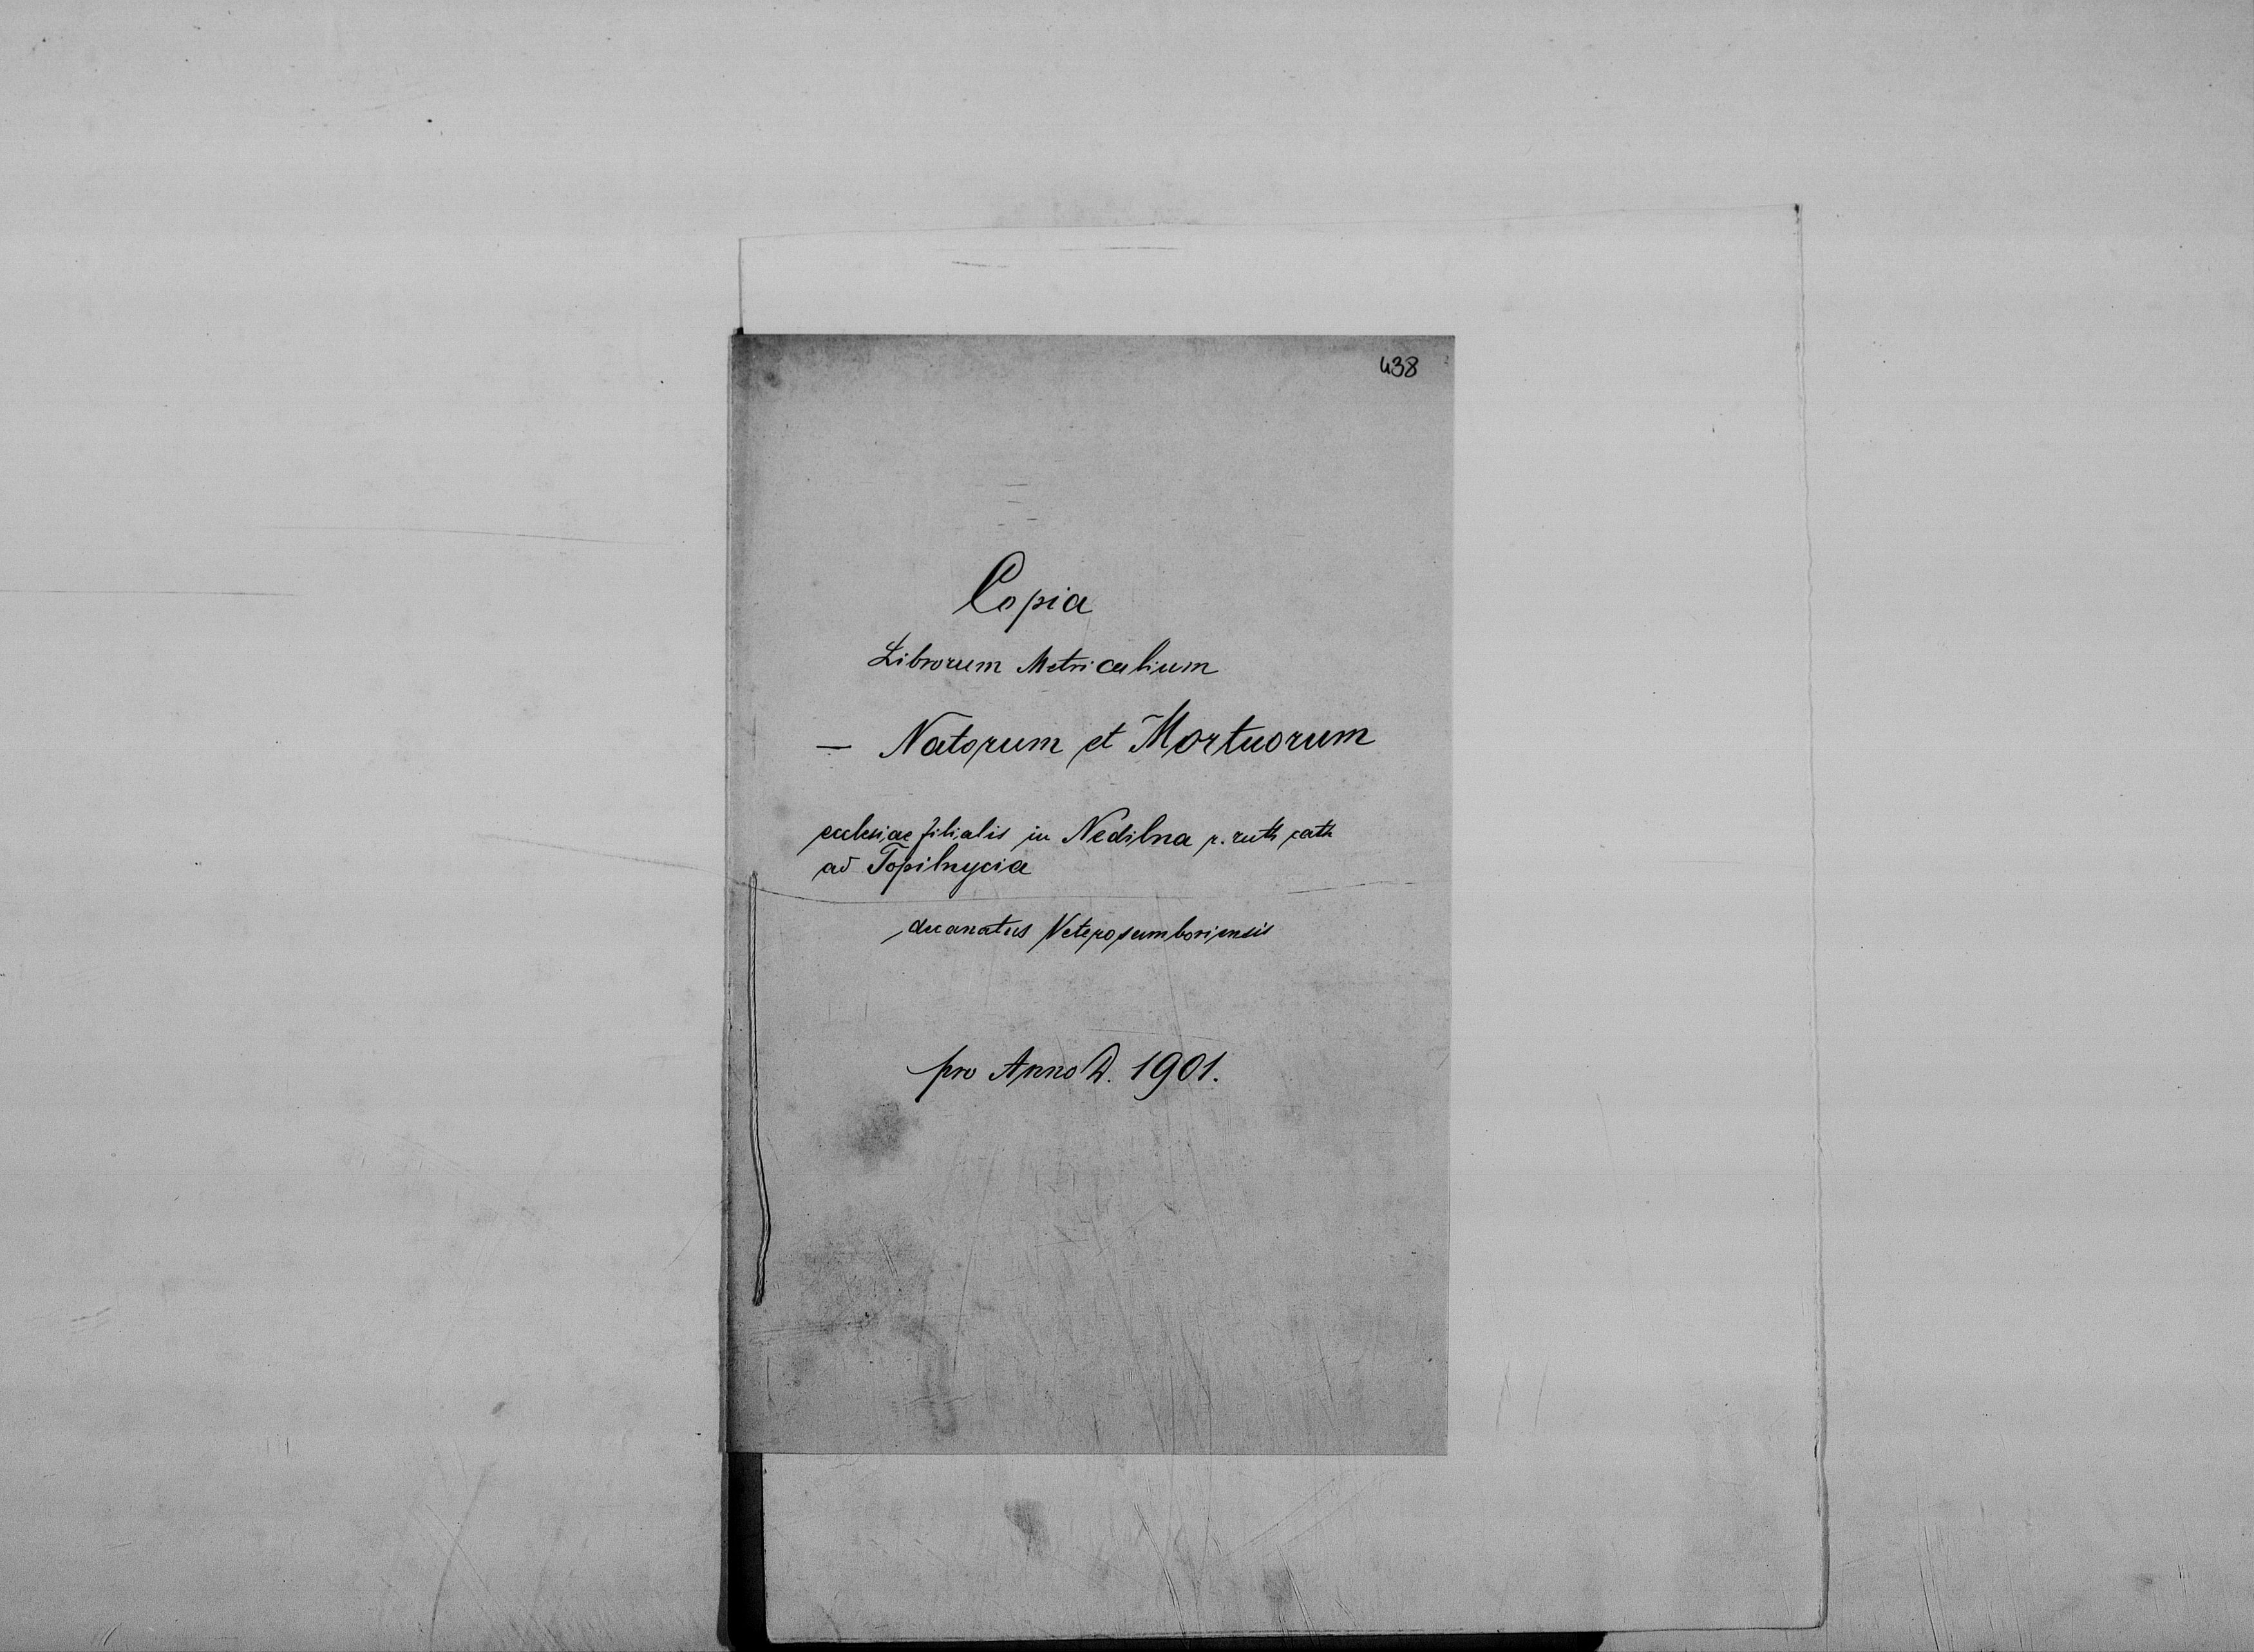 438
Copia
Librorum Metricalium
— Natorum et Mortuorum
ecclesiae filialis in Nedilna r. ruth cath
ad Topilnycia
decanatus Veterosamboriensis
pro Anno D. 1901.